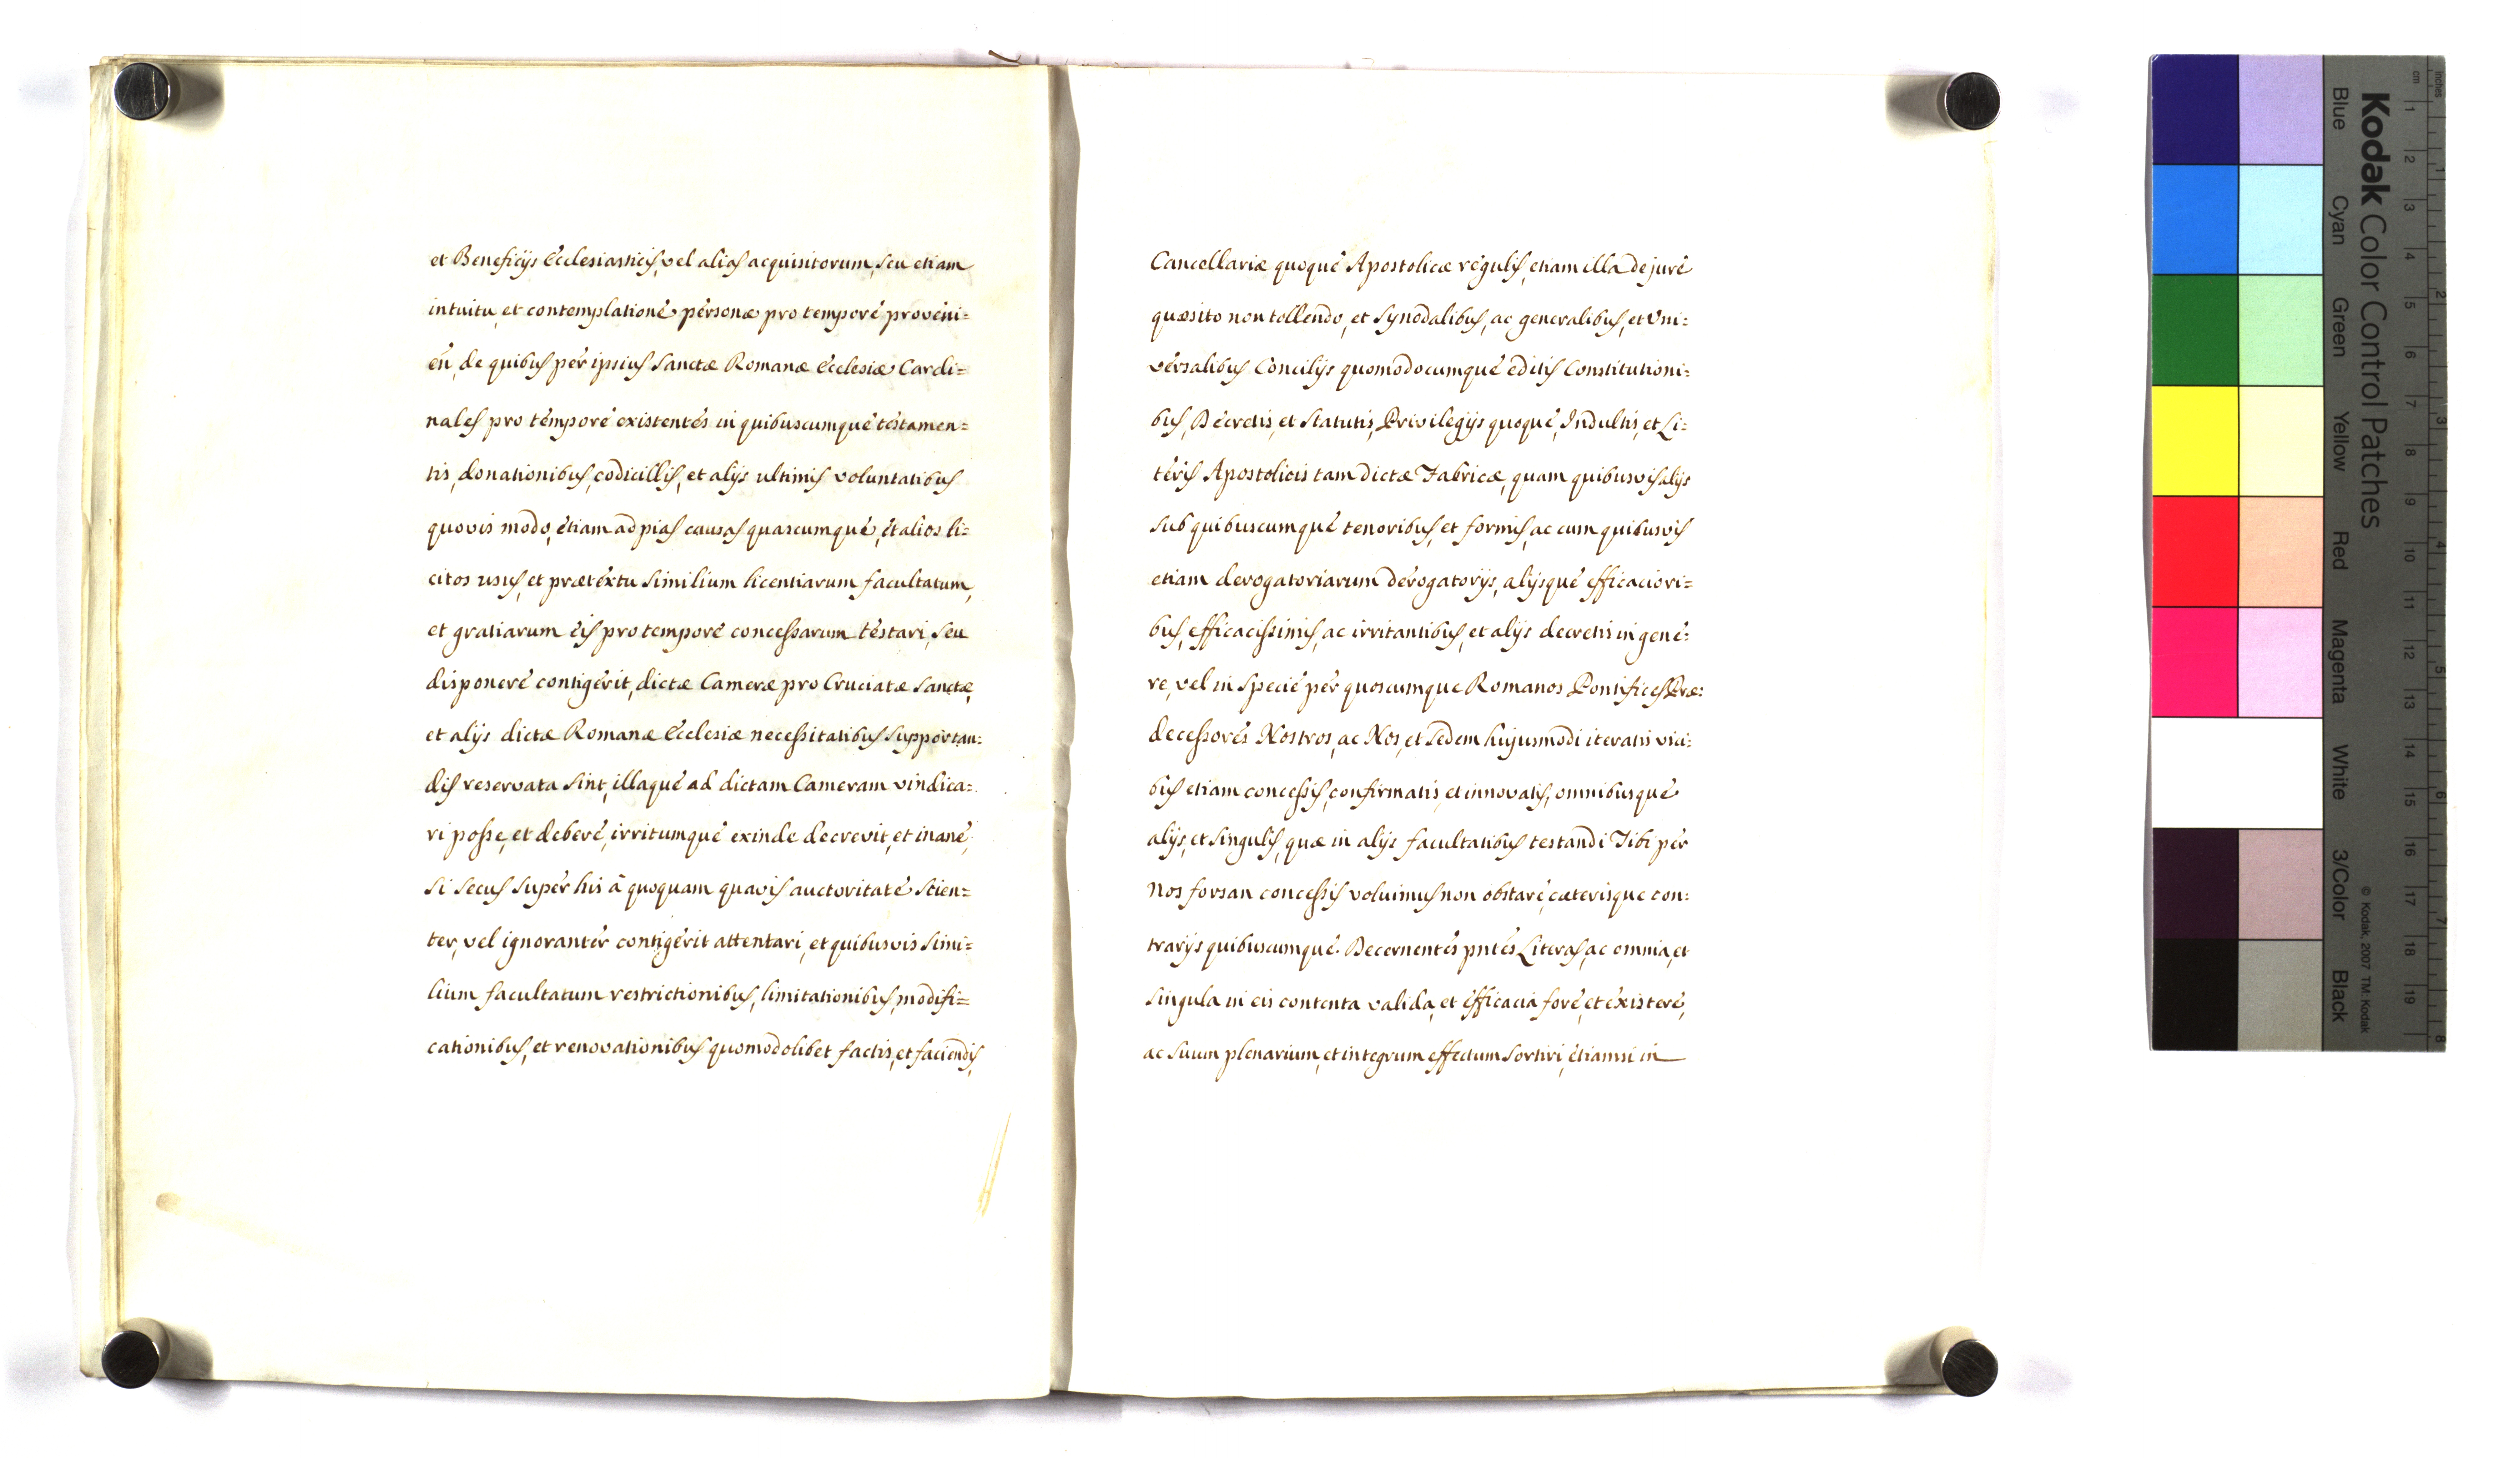 et Beneficijs Ecclesiasticis, vel alias acquisitorum, seu etiam
intuitu, et contemplatione personæ pro tempore proveni=
en, de quibus per ipsius Sanctæ Romanæ Ecclesiæ Cardi=
nales pro tempore existentes in quibuscumque testamen=
tis, donationibus, codicillis, et alijs ultimis voluntatibus
quovis modo, etiam ad pias causas quascumque, et alios li=
citos usus, et prætextu similium licentiarum facultatum,
et gratiarum eis pro tempore concessarum testari, seu
disponere contigerit, dictæ Cameræ pro Cruciatæ Sanctæ,
et alijs dictæ Romanæ Ecclesiæ necessitatibus supportan=
dis reservata sint, illaque ad dictam Cameram vindica=
ri posse, et debere, irritumque exinde decrevit, et inane,
si secus super his â quoquam quavis auctoritate scien=
ter, vel ignoranter contigerit attentari, et quibusvis simi=
lium facultatum restrictionibus, limitationibus, modifi=
cationibus, et renovationibus quomodolibet factis, et faciendis,
Cancellariæ quoque Apostolicæ regulis, etiam illa de jure
quæsito non tollendo, et Synodalibus, ac generalibus, et Vni=
versalibus Concilijs quomodocumque editis Constitutioni=
bus, Decretis, et Statutis, Privilegijs quoque, Indultis, et Li=
teris Apostolicis tam dictæ Fabricæ, quam quibusvis alijs
sub quibuscumque tenoribus, et formis, ac cum quibusvis
etiam derogatoriarum derogatorijs, alijsque efficaciori=
bus, efficacissimis, ac irritantibus, et alijs decretis in gene=
re, vel in specie per quoscumque Romanos Pontifices Præ=
decessores Nostros, ac Nos, et Sedem hujusmodi iteratis vici=
bus etiam concessis, confirmatis, et innovatis, omnibusque
alijs, et singulis, quæ in alijs facultatibus testandi Tibi per
Nos forsan concessis voluimus non obstare, cæterisque con=
trarijs quibuscumque. Decernentes pntes Literas, ac omnia, et
singula in eis contenta valida, et efficacia fore, et existere,
ac suum plenarium, et integrum effectum sortiri, etiamsi in
Kodak Color Control Patches
Blue
Cyan
Green
Yellow
Red
Magenta
White
3/Color
Black
© Kodak, 2007 TM: Kodak
cm
1
2
3
4
5
6
7
8
9
10
11
12
13
14
15
16
17
18
19
inches
1
2
3
4
5
6
7
8